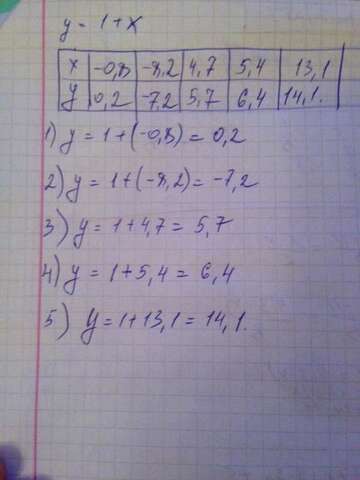 y = 1+x
x -0,8 -8,2 4,7 5,4 13,1
y 0,2 -7,2 5,7 6,4 14,1.
1) y = 1+(-0,8) = 0,2
2) y = 1+(-8,2) = -7,2
3) y = 1+4,7 = 5,7
4) y = 1+5,4 = 6,4
5) y = 1+13,1 = 14,1.